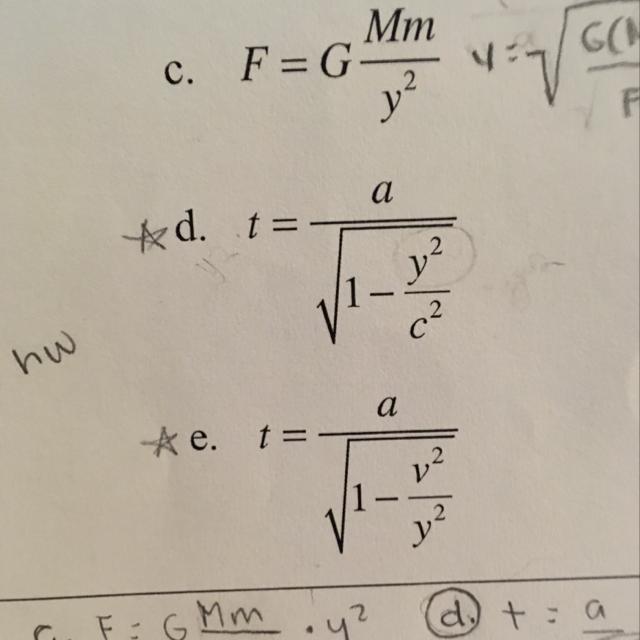 c. F = G Mm / y² y = √ G(M / F
☆ d. t = a / √(1 − y²/c²)
hw
☆ e. t = a / √(1 − v²/y²)
c. F = G Mm · y² d. t = a